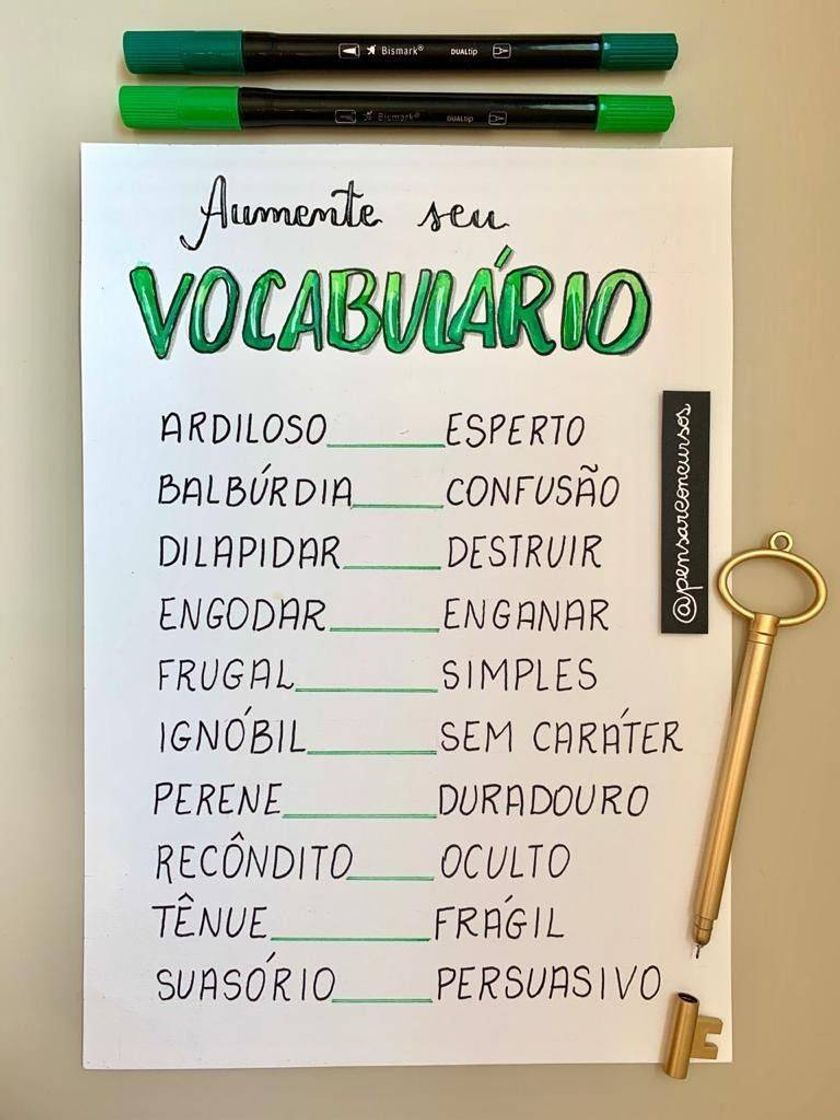 Bismark® DUALtip
Bismark® DUALtip
Aumente seu
VOCABULÁRIO
ARDILOSO ESPERTO
BALBÚRDIA CONFUSÃO
DILAPIDAR DESTRUIR
ENGODAR ENGANAR
FRUGAL SIMPLES
IGNÓBIL SEM CARÁTER
PERENE DURADOURO
RECÔNDITO OCULTO
TÊNUE FRÁGIL
SUASÓRIO PERSUASIVO
@pensarconcursos